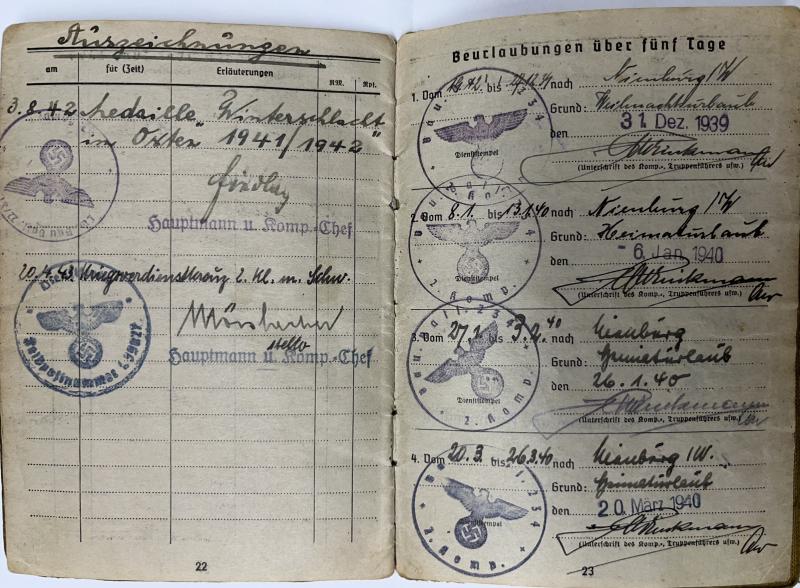 Auszeichnungen
am für (Zeit) Erläuterungen RM. Rpf.
3.8.42 Medaille „Winterschlacht
im Osten 1941/1942"
Hauptmann u. Komp.-Chef
20.4.43 Kriegsverdienstkreuz 2. Kl. m. Schw.
Hauptmann u. Komp.-Chef
Feldpostnummer
22
Beurlaubungen über fünf Tage
1. Vom bis nach Nienburg /W
Grund: Weihnachtsurlaub
den 31 Dez. 1939
Dienststempel
(Unterschrift des Komp.-, Truppenführers usw.)
Bau. Batl. 234
2. Vom 8.1. bis 13.1.40 nach Nienburg /W
Grund: Heimaturlaub
den - 6. Jan. 1940
Brinkmann
(Unterschrift des Komp.-, Truppenführers usw.)
Bau. Batl. 234
2. Komp.
3. Vom 27.1. bis 3.2.40 nach Nienburg
Grund: Heimaturlaub
den 26.1.40
Dienststempel
Brinkmann
(Unterschrift des Komp.-, Truppenführers usw.)
Bau. Batl. 234
2. Komp.
4. Vom 20.3. bis 26.3.40 nach Nienburg /W.
Grund: Heimaturlaub
den 20. März 1940
Dienststempel
Brinkmann
(Unterschrift des Komp.-, Truppenführers usw.)
2. Komp.
23